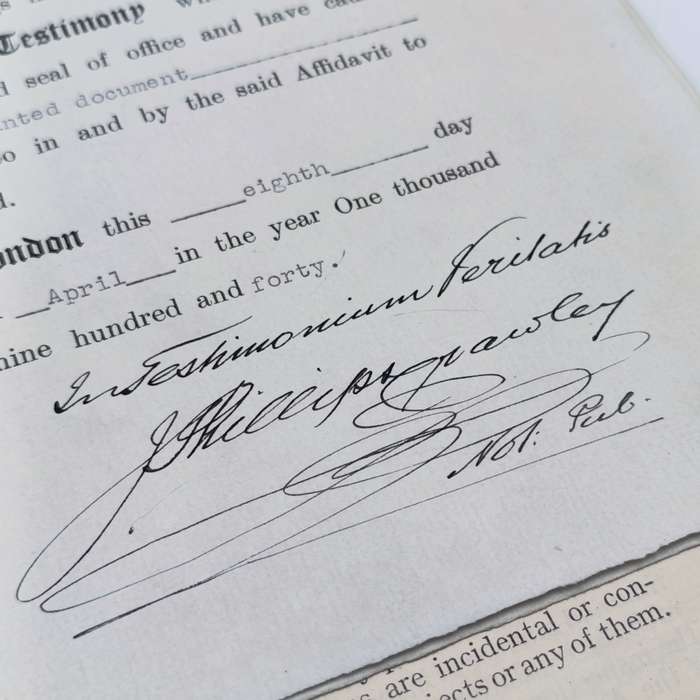 Testimony
seal of office and have
document
in and by the said Affidavit to
London this eighth day
April in the year One thousand
nine hundred and forty.
In Testimonium Veritatis
J Phillips Crawley
Not: Pub.
are incidental or con-
or any of them.